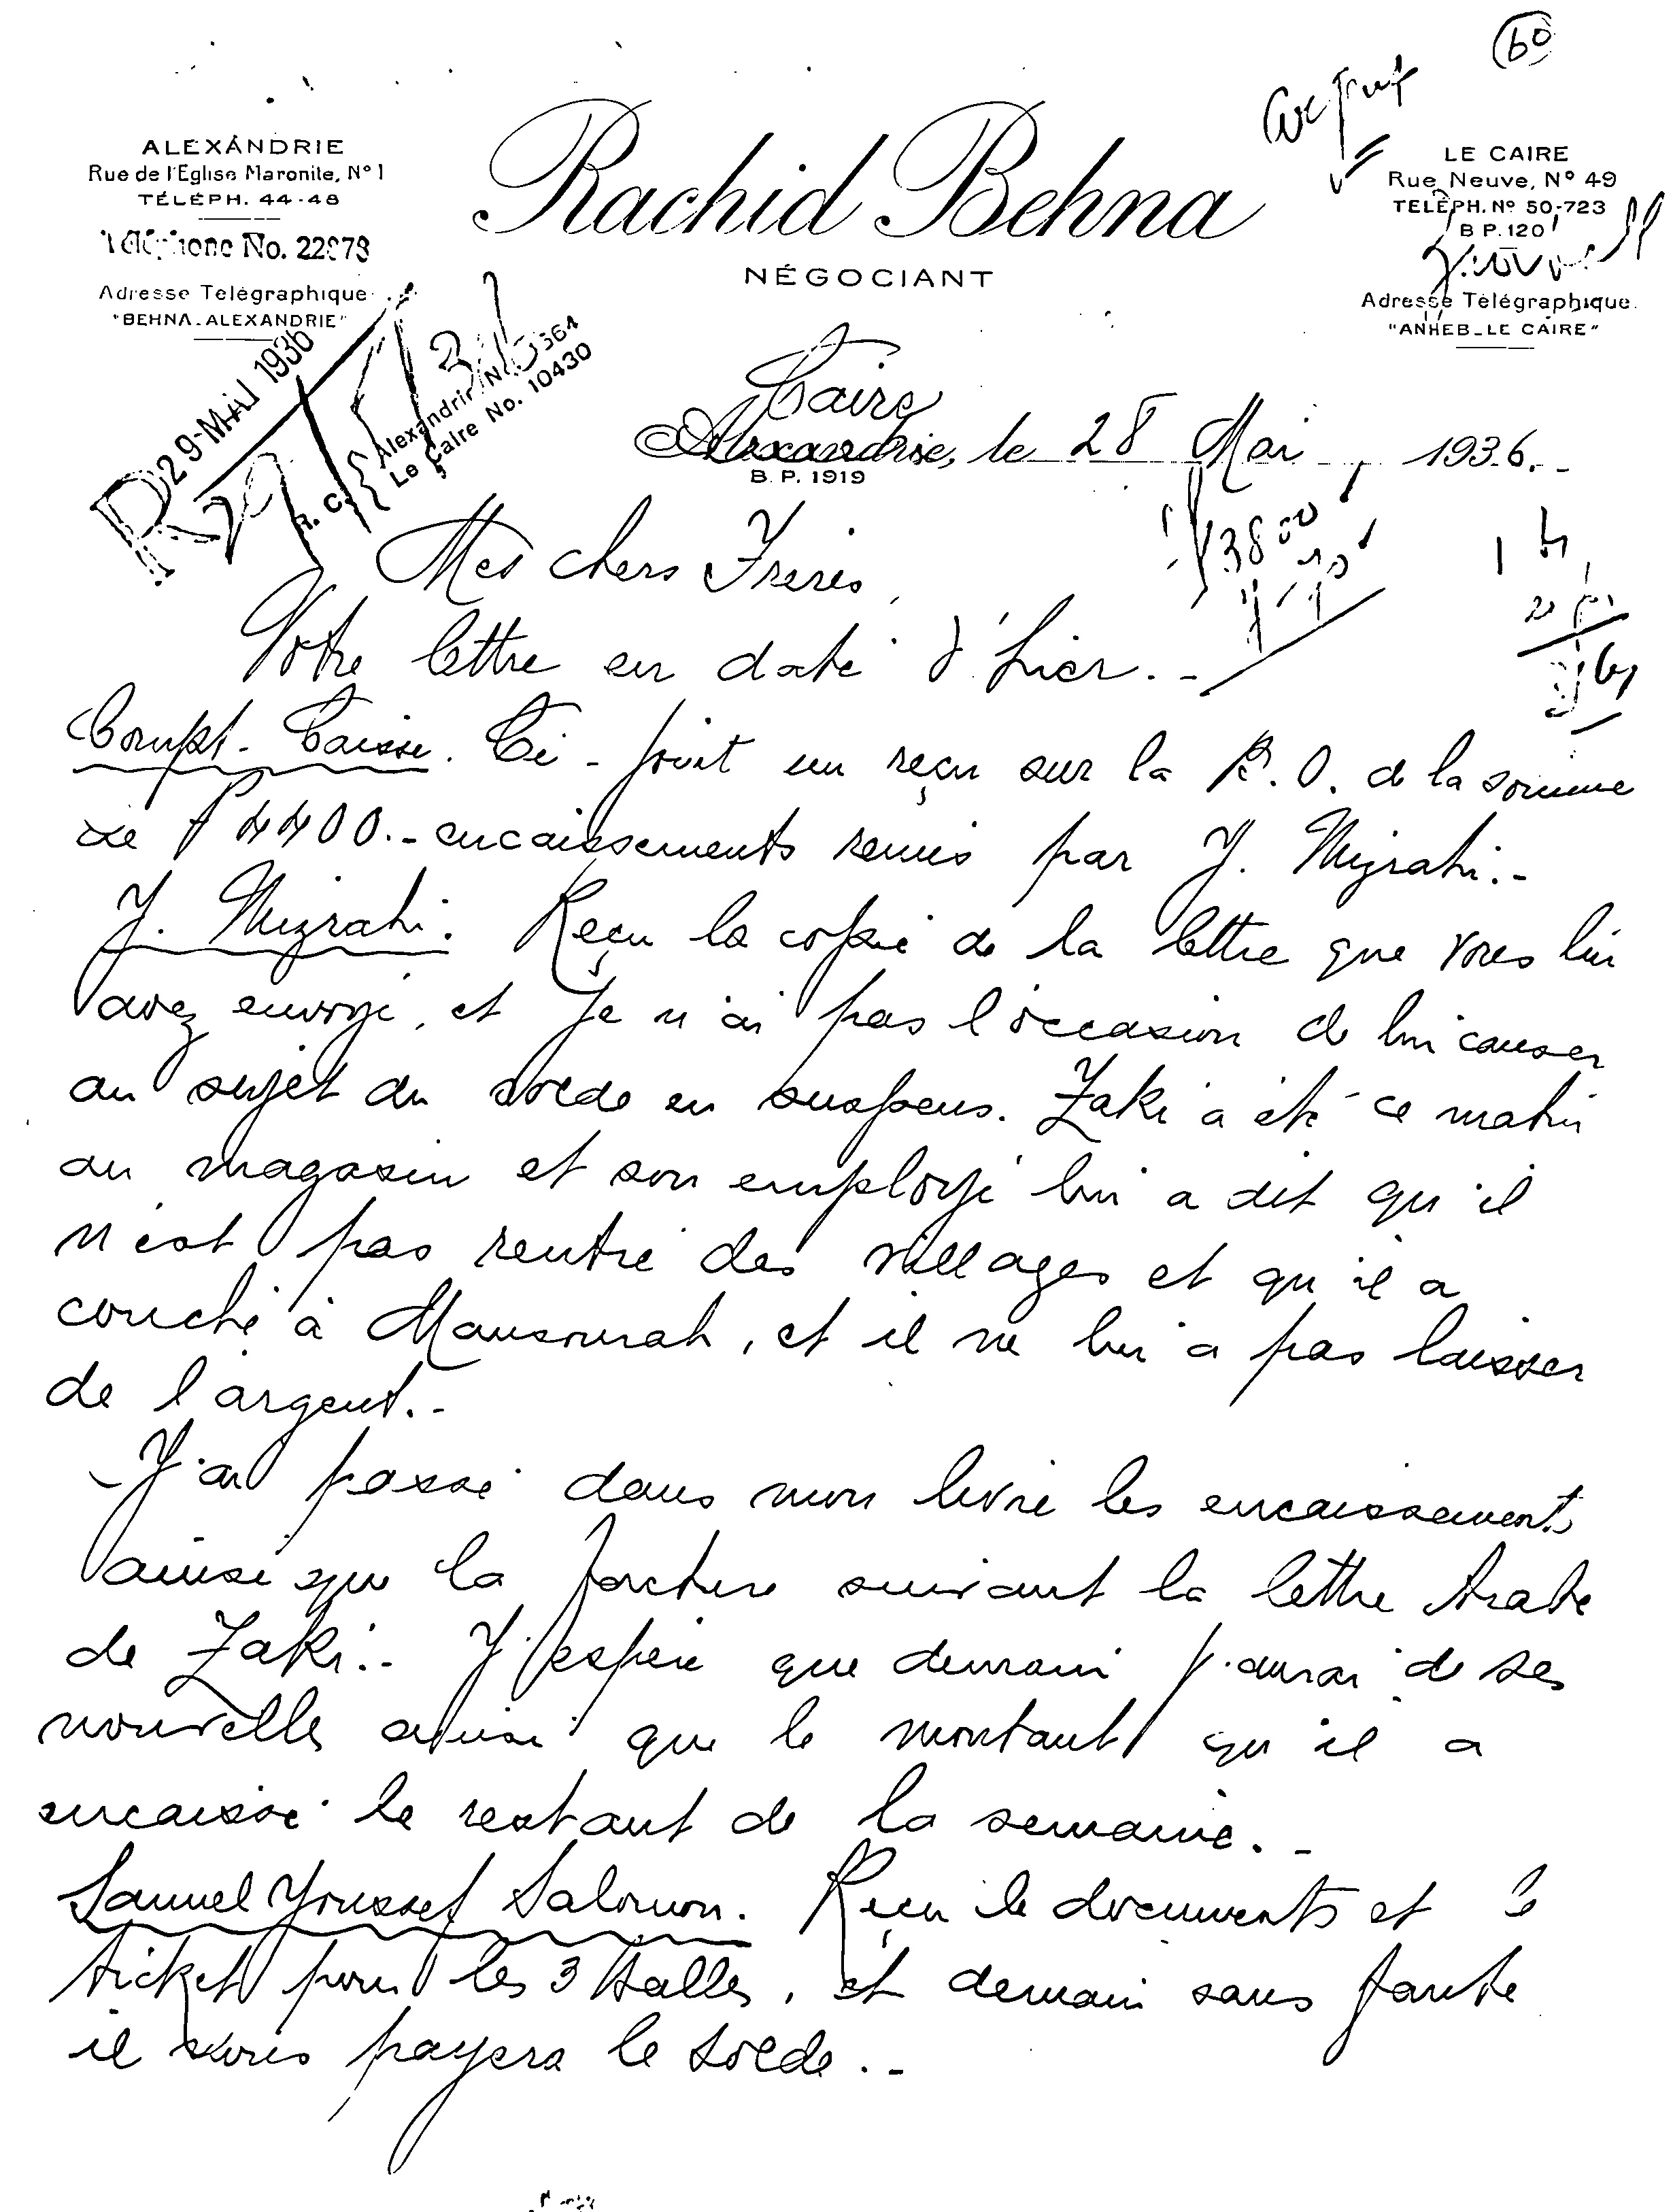 60
ALEXANDRIE
Rue de l'Eglise Maronite, N° 1
TÉLÉPH. 44-48
Téléphone No. 22978
Adresse Telégraphique
"BEHNA-ALEXANDRIE"
Rachid Behna
NÉGOCIANT
LE CAIRE
Rue Neuve, N° 49
TELÉPH. N° 50-723
B P. 120
Adresse Télégraphique.
"ANHEB_LE CAIRE"
R 29 MAI 1936
R. C. Alexandrie N
Le Caire No. 10430
Caire
Alexandrie, le 28 Mai, 1936.-
B. P. 1919
3800
Mes chers Freres,
Votre lettre en date d'hier.-
Compt-Caisse. Ci-joint un reçu sur la B.O. de la somme
de P 4400.- encaissements remis par J. Mizrahi.-
J. Mizrahi. Reçu la copie de la lettre que vous lui
avez envoyé, et je n'ai pas l'occasion de lui causer
au sujet du solde en suspens. Zaki a été ce matin
au magasin et son employé lui a dit qu'il
n'est pas rentré des villages et qu'il a
couché à Mansourah, et il ne lui a pas laisser
de l'argent.-
- J'ai passé dans mon livre les encaissements
ainsi que la facture suivant la lettre Arabe
de Zaki.- J'espère que demain j'aurai de ses
nouvelles ainsi que le montant qu'il a
encaissé le restant de la semaine.-
Samuel Youssef Salomon. Reçu le documents et le
ticket pour les 3 Balles, et demain sans faute
il vous payera le solde.-